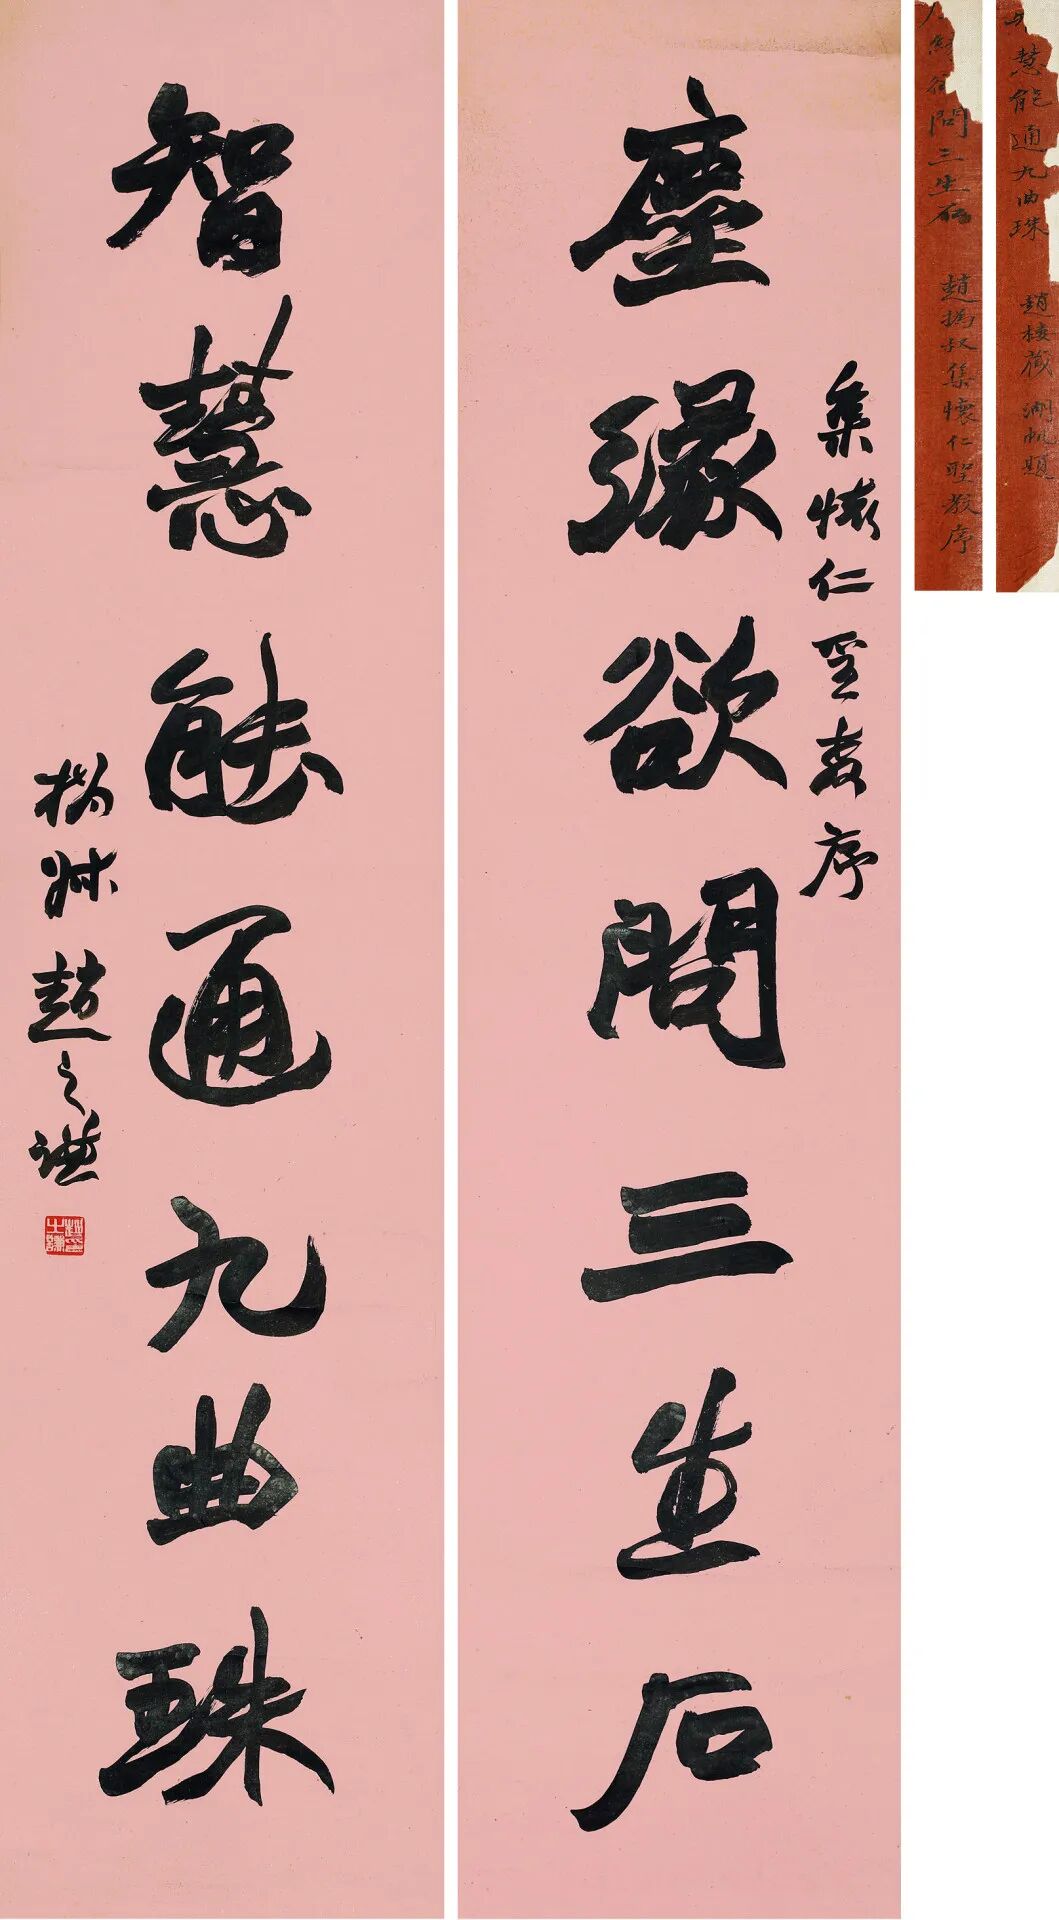 集懷仁聖教序
塵緣欲問三生石
智慧能通九曲珠
撝叔趙之謙
趙之謙印
慧能通九曲珠
湖帆題
問三生石
趙撝叔集懷仁聖教序